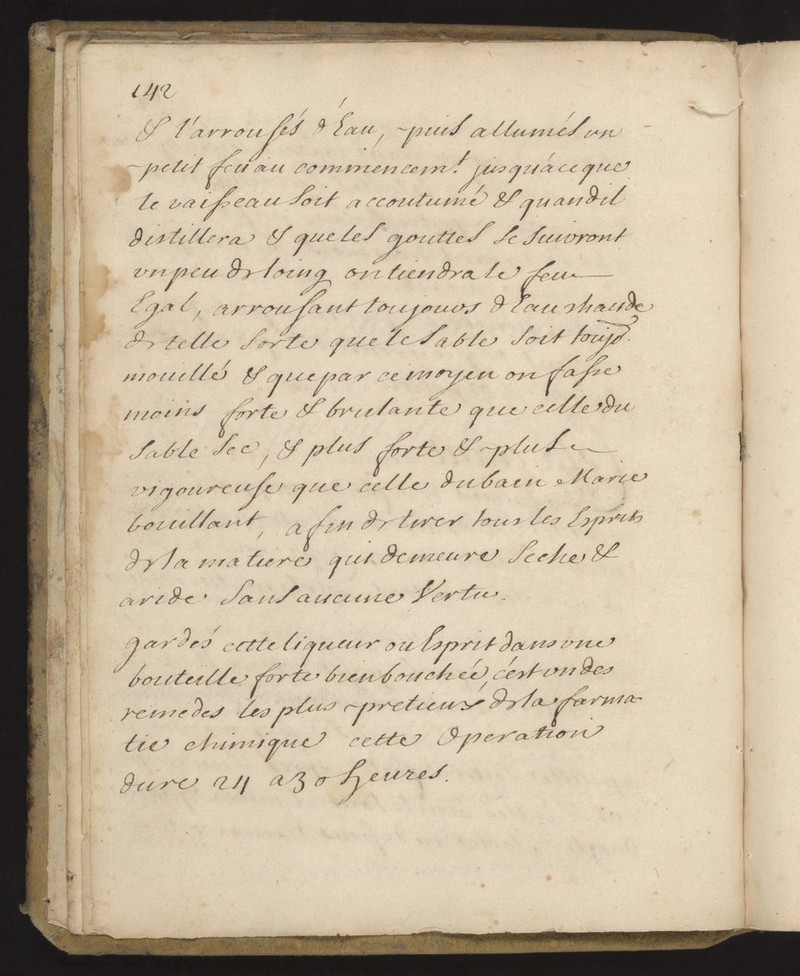 142
& l'arrousés d'Eau, puis allumés un
petit feu au commencem.t jusqu'a ce que
le vaisseau soit accoutumé & quand il
distillera & que les gouttes se suivront
un peu de loing on tiendra le feu
Egal, arrousant toujours d'Eau chaude
de telle sorte que le sable soit toujo.
mouillé & que par ce moyen on fasse
moins forte & brulante que celle du
sable sec, & plus forte & plus
vigoureuse que celle du bain Marie
bouillant, afin de tirer tous les Esprits
de la matiere qui demeure seche &
aride sans aucune Vertu.
gardés cette liqueur ou Esprit dans une
bouteille forte bien bouchée, c'est un des
remedes les plus pretieux de la farma-
tie chimique cette Operation
dure 24 a 30 heures.